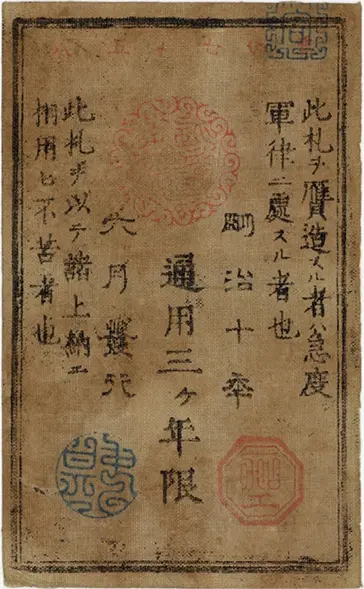 此札ヲ贋造スル者ハ急度
軍律ニ處スル者也
明治十年
通用三ヶ年限
六月發行
此札ヲ以テ諸上納エ
相用ヒ不苦者也